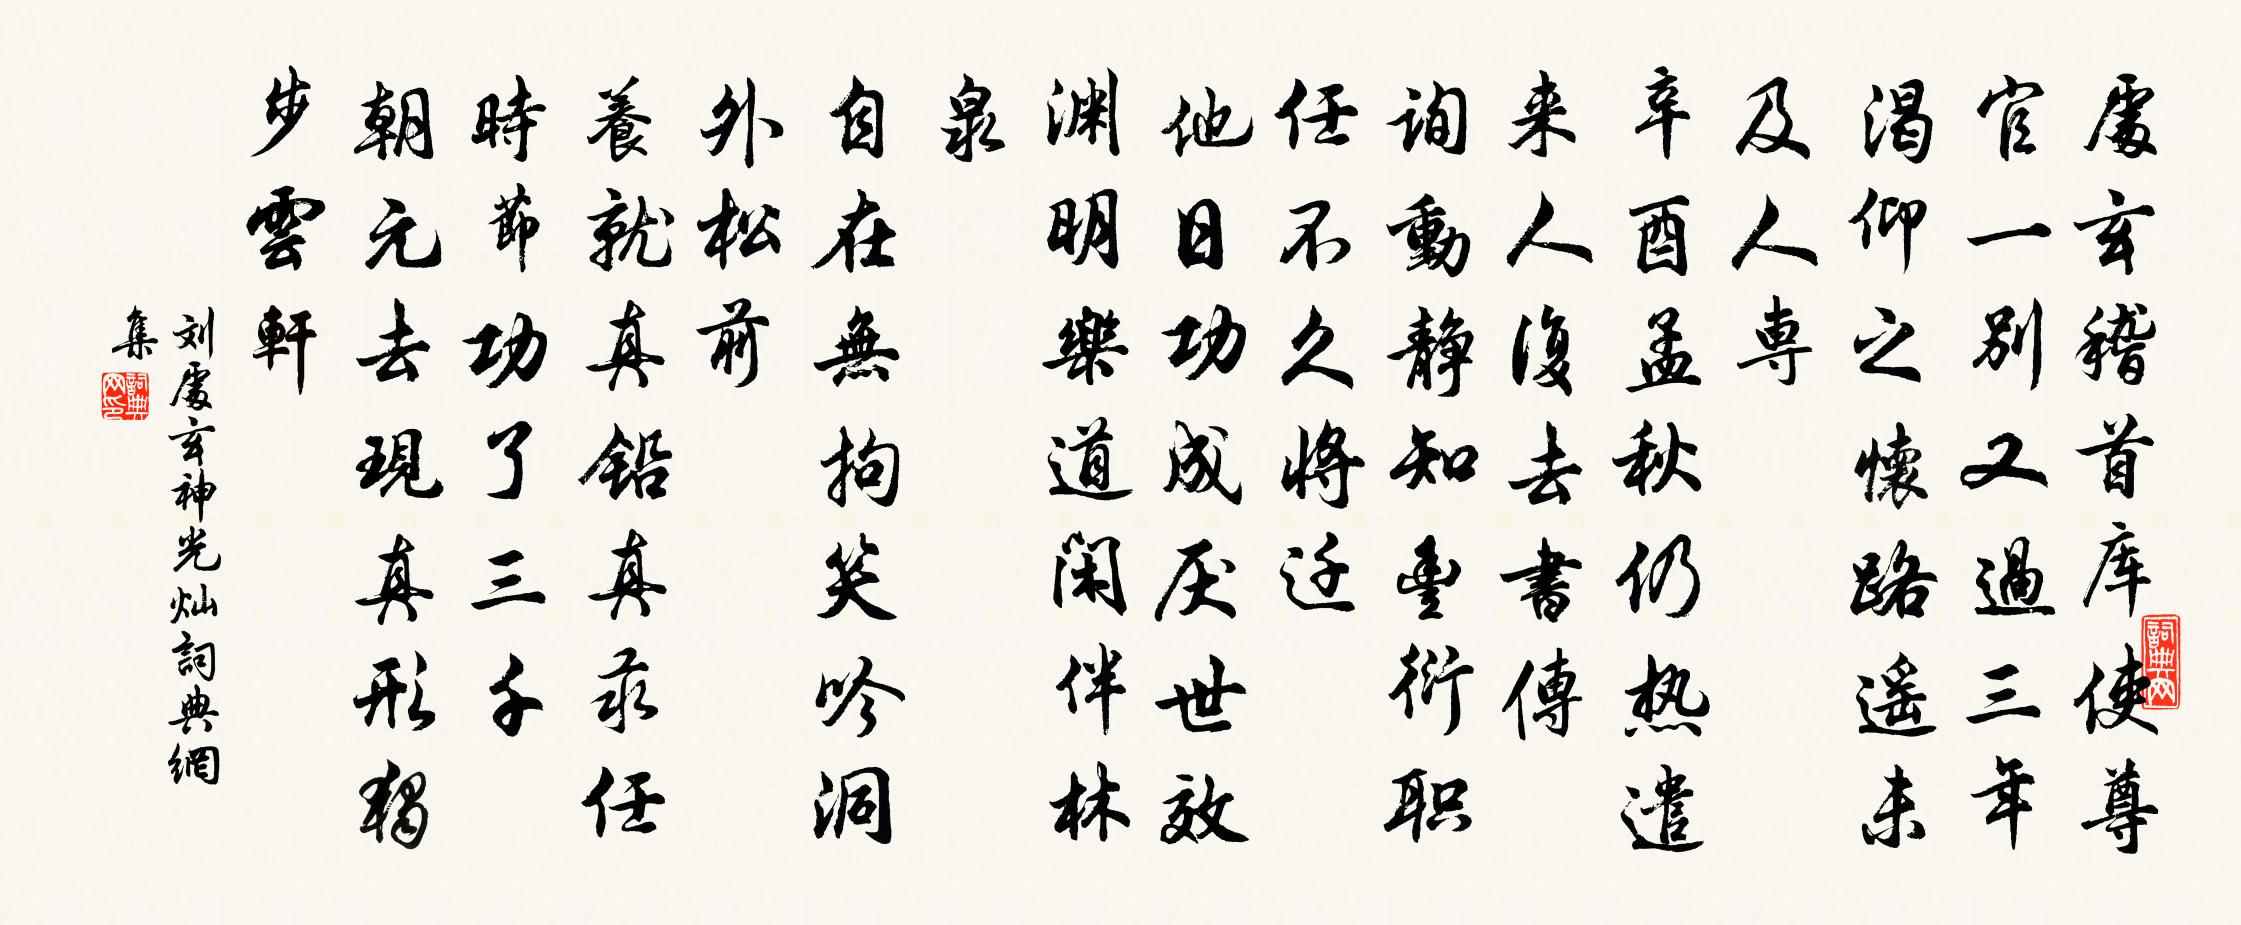 處玄稽首库使尊
官一别又過三年
渴仰之懷路遥未
及人専
辛酉孟秋仍热遣
来人復去書傳
詢動静知豊衍职
任不久將迁
他日功成厌世效
渊明樂道闲伴林
泉
自在無拘笑吟洞
外松前
養就真铅真汞任
時節功了三千
朝元去現真形獨
步雲軒
刘處玄神光灿詞典網
集
詞典网
詞典网印